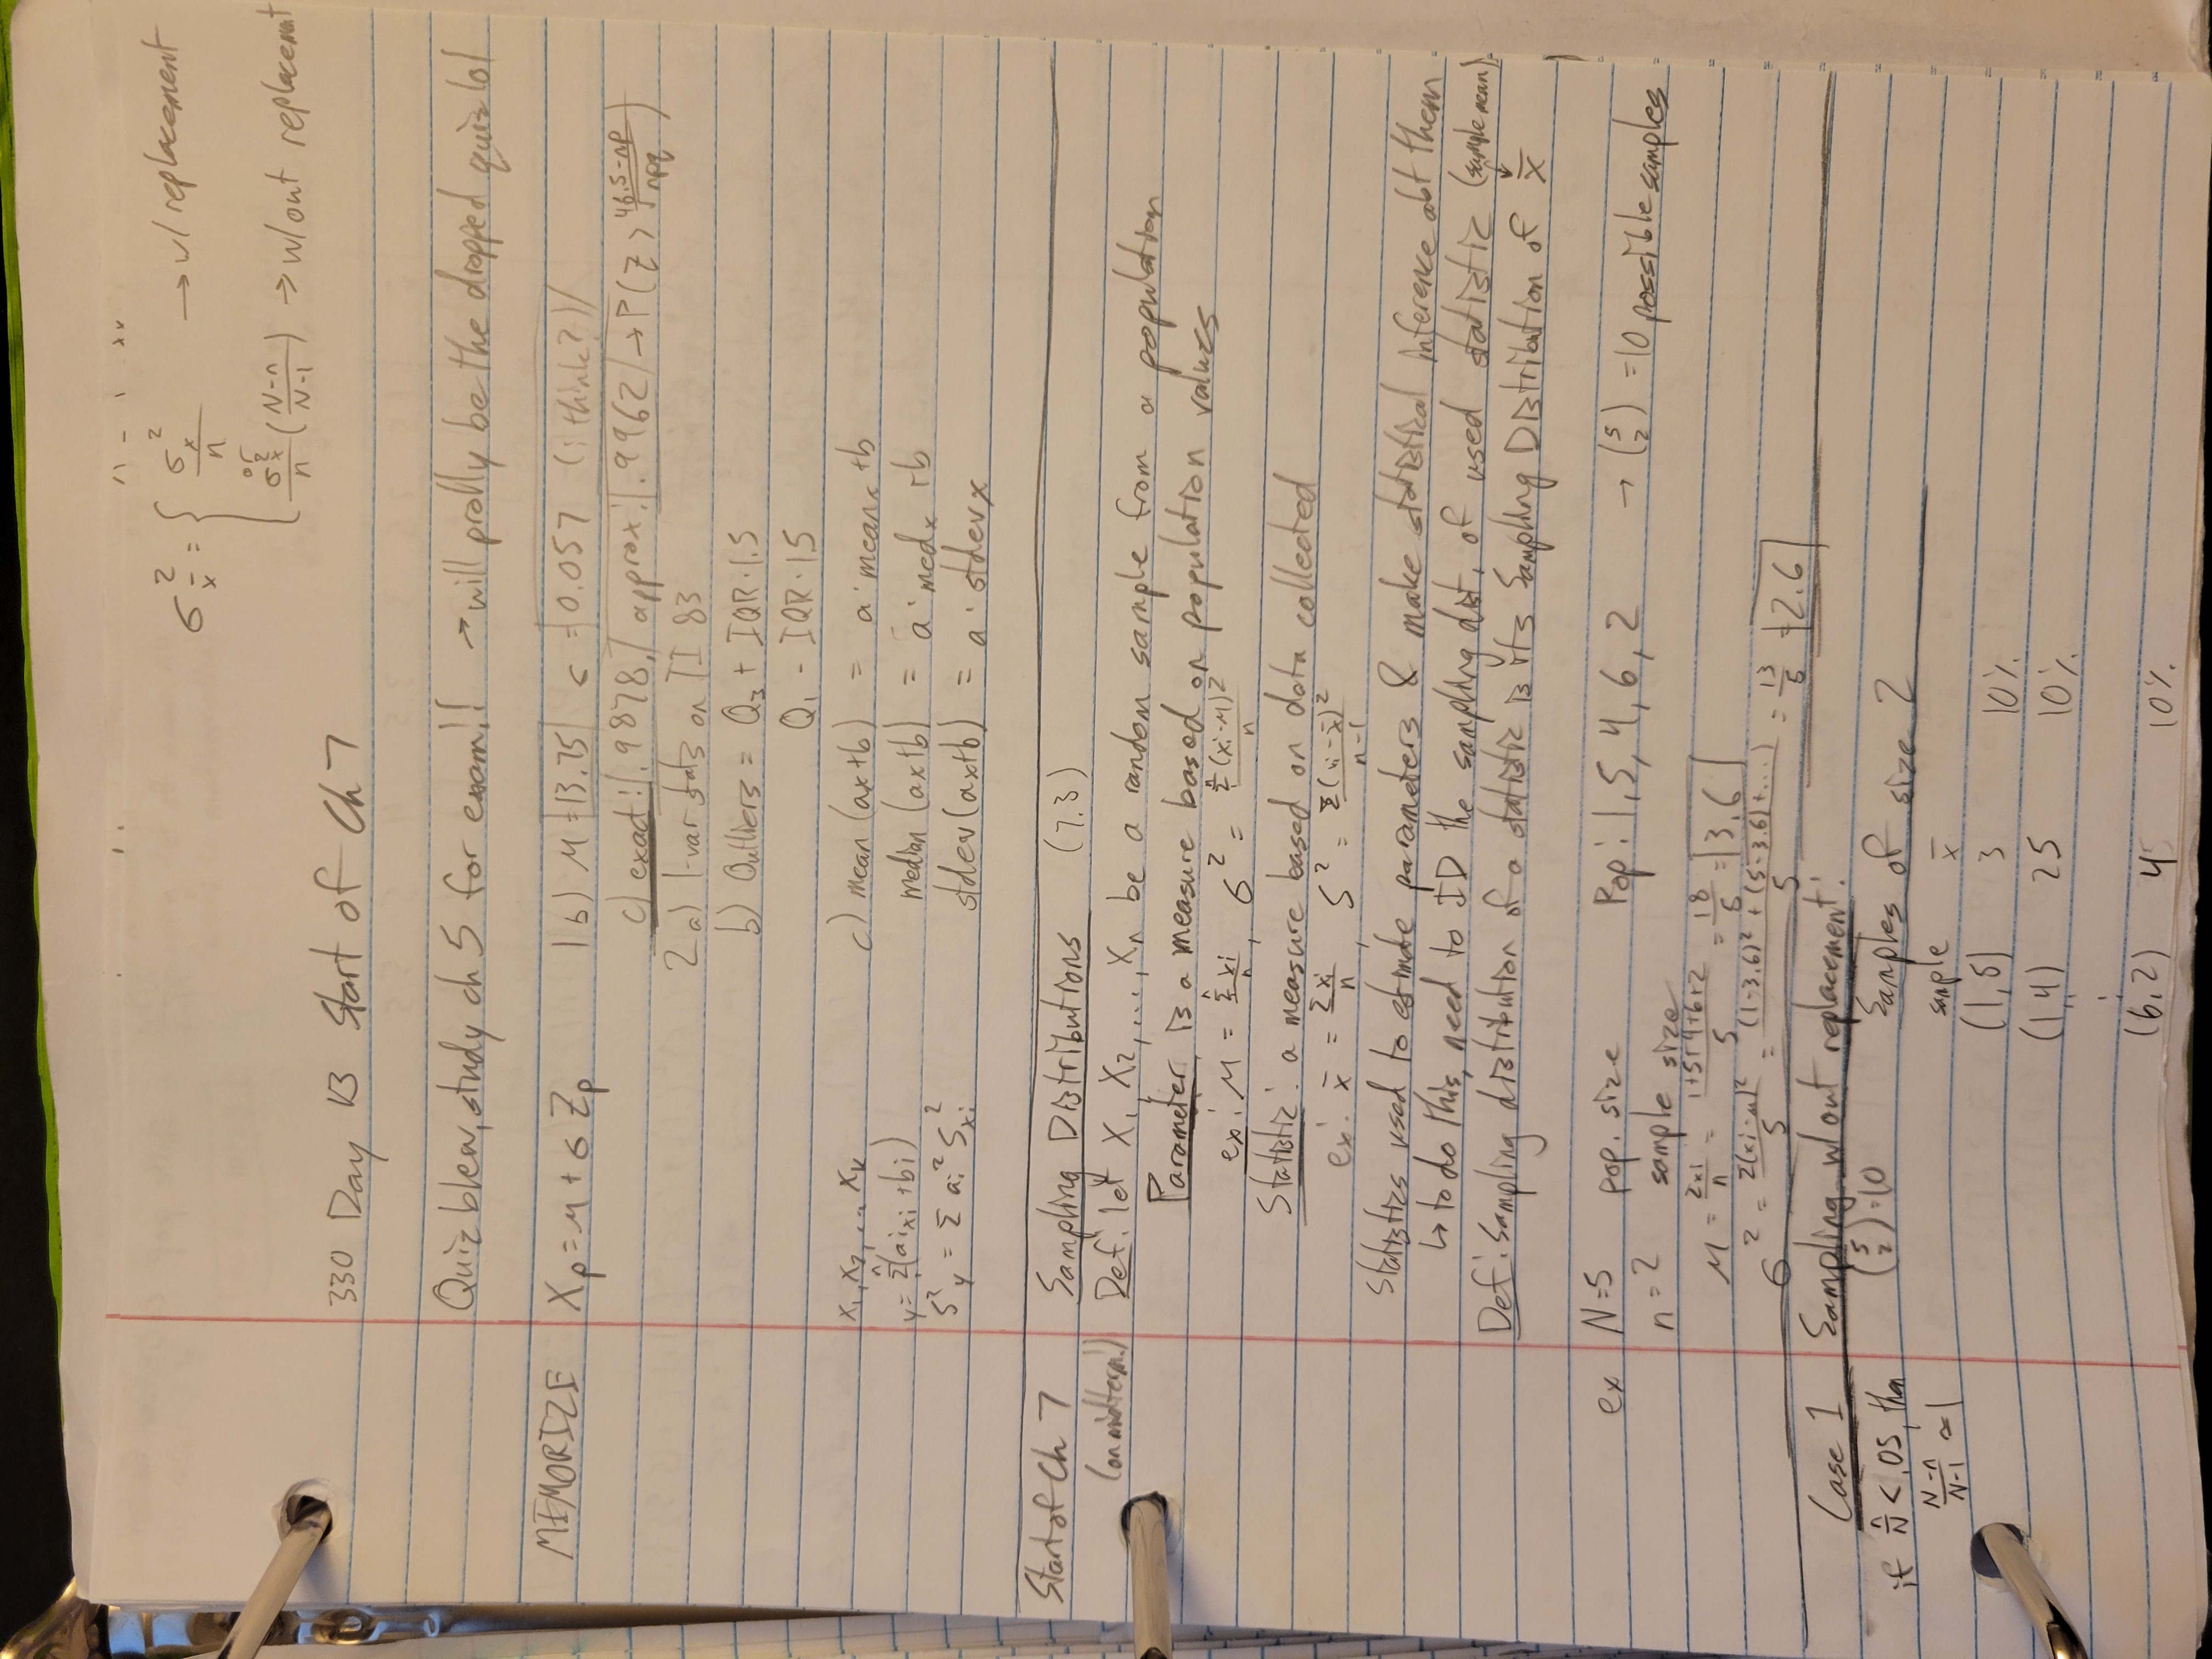 σ²x̄ = { σ²x/n → w/ replacement
or
σ²x/n (N-n/N-1) → w/out replacement
330 Day 13 Start of Ch 7
Quiz blew, study ch 5 for exam!! → will prolly be the dropped quiz lol
MEMORIZE Xp = μ + σ Zp 1b) μ = 13.75 σ = 0.057 (i think?)
c) exact: .9878, approx: .9962 → P(Z > 46.5-np/√npq)
2a) 1-var stats on TI 83
b) Outliers = Q₃ + IQR·1.5
Q₁ - IQR·1.5
x₁, x₂, ... xₖ c) mean (ax+b) = a·meanₓ + b
y = Σⁿ(aᵢxᵢ + bᵢ) median (ax+b) = a·medₓ + b
S²y = Σ aᵢ² S²xᵢ stdev (ax+b) = a·stdev x
Start of Ch 7 Sampling Distributions (7.3)
(on midterm!) Def: let X₁, X₂, ..., Xₙ be a random sample from a population
Parameter is a measure based on population values
ex: μ = Σⁿxi/n, σ² = Σⁿ(xi-μ)²/n
Statistic: a measure based on data collected
ex: x̄ = Σxi/n, S² = Σ(xi-x̄)²/n-1
Statistics used to estimate parameters & make statistical inference abt them
↳ to do this, need to ID the sampling dist. of used statistic (sample mean)
Def: Sampling distribution of a statistic is its Sampling Distribution of x̄
ex N=5 pop. size Pop: 1, 5, 4, 6, 2 → (5 2) = 10 possible samples
n=2 sample size
μ = Σxi/n = 1+5+4+6+2/5 = 18/5 = 3.6
σ² = Σ(xi-μ)²/5 = (1-3.6)² + (5-3.6)+...)/5 = 13/5 = 2.6
Case 1 Sampling w/out replacement:
if n/N < .05, then (5 2) = 10 Samples of size 2
N-n/N-1 ≈ 1 sample x̄
(1,5) 3 10%
(1,4) 2.5 10%
⋮
(6,2) 4 10%